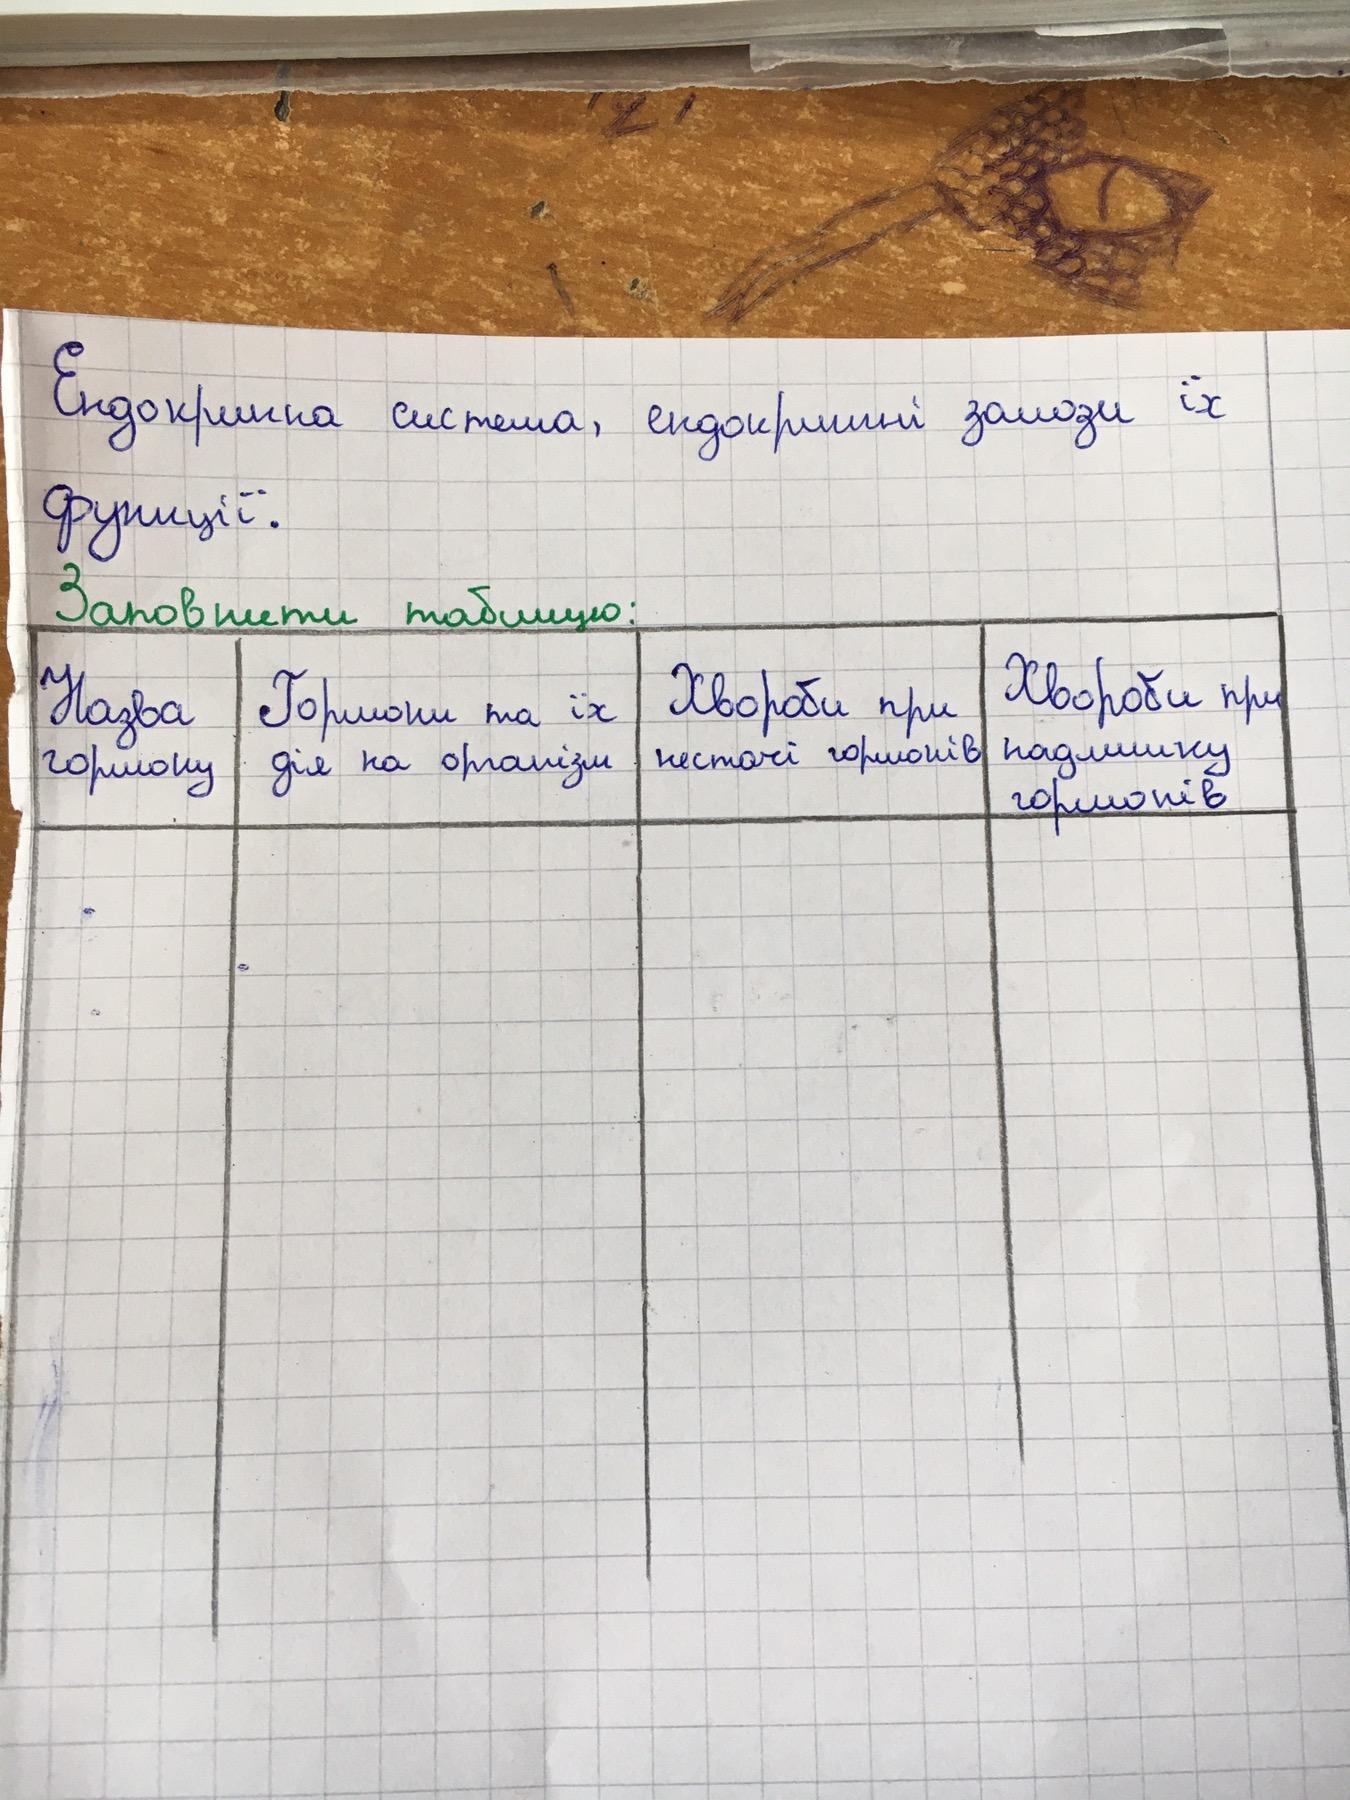 Ендокринна система, ендокринні залози їх
функції.
Заповнити таблицю:
Назва
гормону
Гормони та їх
дія на організм
Хвороби при
нестачі гормонів
Хвороби при
надлишку
гормонів